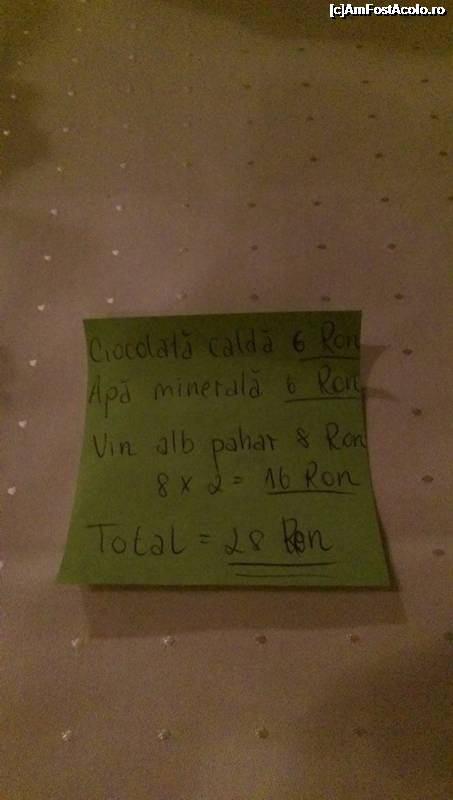 [c]AmFostAcolo.ro
Ciocolată caldă 6 Ron
Apă minerală 6 Ron
Vin alb pahar 8 Ron
8 x 2 = 16 Ron
Total = 28 Ron